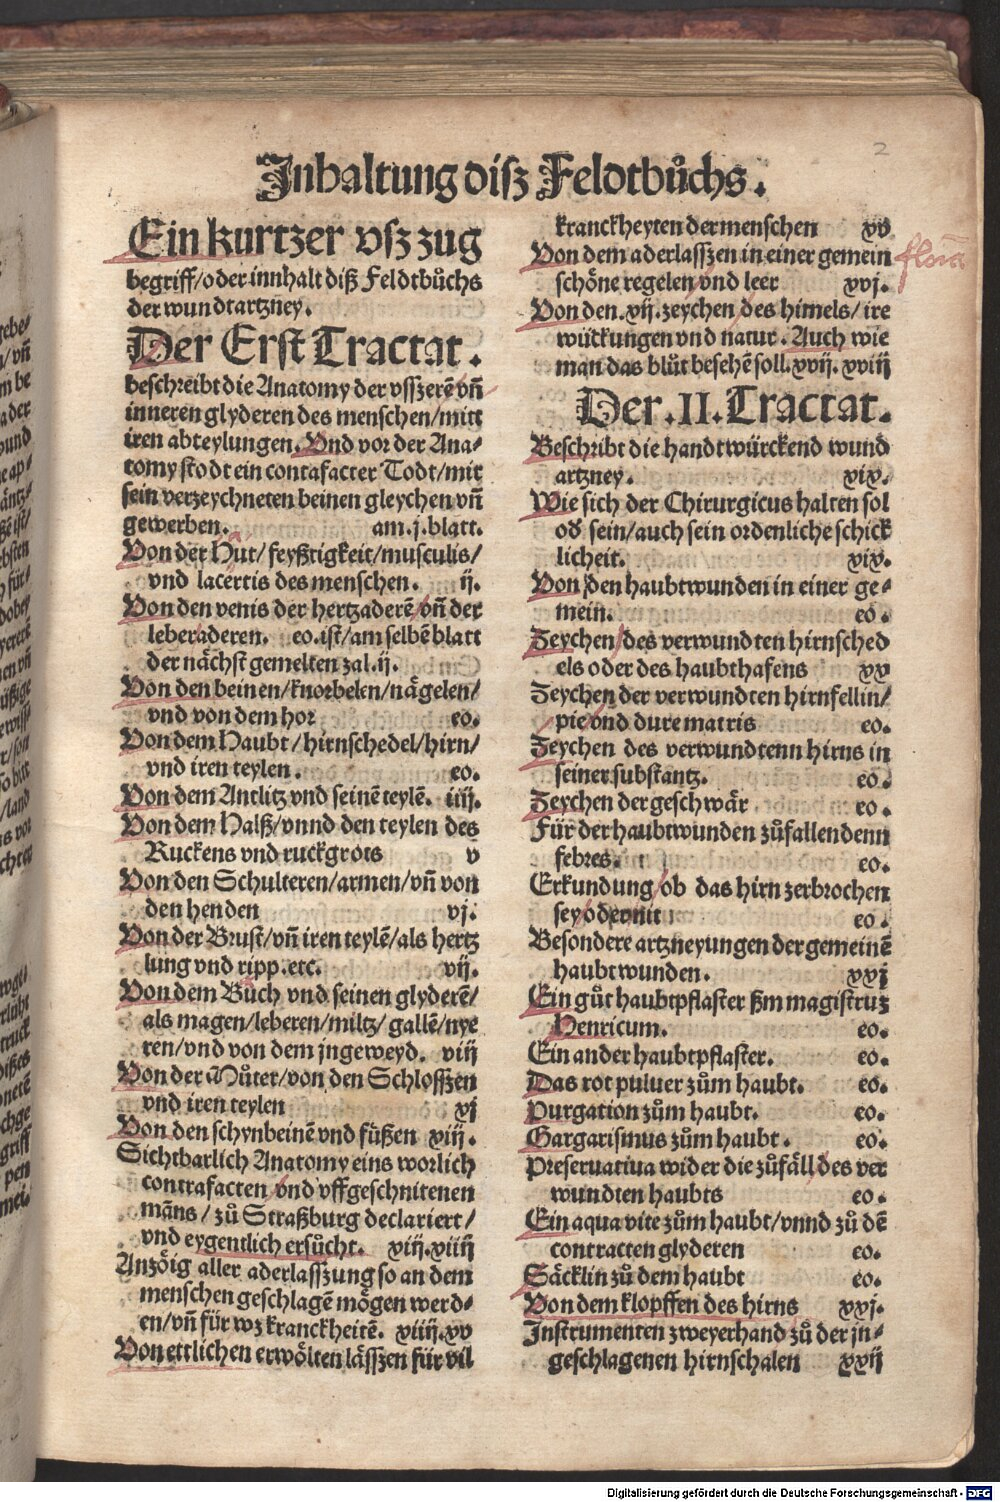 2
Inhaltung disz Feldtbůchs.
Ein kurtzer vsz zug
begriff/oder innhalt diß Feldtbůchs
der wundtartzney.
Der Erst Tractat.
beschreibt die Anatomy der vsszerē vñ
inneren glyderen des menschen/mitt
iren abteylungen. Vnd vor der Ana⸗
tomy stodt ein contafacter Todt/mit
sein verzeychneten beinen gleychen vñ
gewerben. am.j.blatt.
Von der Hut/feyßtigkeit/musculis/
vnd lacertis des menschen. ij.
Von den venis der hertzaderē/vñ der
leberaderen. eo.ist/am selbē blatt
der nächst gemelten zal.ij.
Von den beinen/knorbelen/nägelen/
vnd von dem hor eo.
Von dem Haubt/hirnschedel/hirn/
vnd iren teylen. eo.
Von dem Antlitz vnd seinē teylē. iiij.
Von dem Halß/vnnd den teylen des
Ruckens vnd ruckgrots v
Von den Schulteren/armen/vñ von
den henden vj.
Von der Brust/vñ iren teylē/als hertz
lung vnd ripp.etc. vij.
Von dem Bůch vnd seinen glyderē/
als magen/leberen/miltz/gallē/nye
ren/vnd von dem jngeweyd. viij
Von der Můter/von den Schlosszen
vnd iren teylen xj
Von den schynbeinē vnd füßen xiij.
Sichtbarlich Anatomy eins worlich
contrafacten vnd vffgeschnitenen
māns/zů Straßburg declariert/
vnd eygentlich ersůcht. xiij.xiiij
Anzöig aller aderlasszung so an dem
menschen geschlagē mögen werd⸗
en/vñ für wz kranckheitē. xiiij.xv
Von ettlichen erwölten lässzen für vil
kranckheyten der menschen xv
Von dem aderlasszen in einer gemein
schöne regelen vnd leer xvj.
Von den.xij.zeychen des himels/ire
würkungen vnd natur. Auch wie
man das blůt besehē soll.xvij.xviij
Der .II. Tractat.
Beschribt die handtwürckend wund
artzney. xix.
Wie sich der Chirurgicus halten sol
oď sein/auch sein ordenliche schick
licheit. xix.
Von den haubtwunden in einer ge⸗
mein. eo.
Zeychen des verwundten hirnsched
els oder des haubthafens xx
Zeychen der verwundten hirnfellin/
pie vnd dure matris eo.
Zeychen des verwundtenn hirns in
seiner substantz. eo.
Zeychen der geschwär eo.
Für der haubtwunden zůfallendenn
febres. eo.
Erkundung/ob das hirn zerbrochen
sey oder nit eo.
Besondere artzneyungen der gemeinē
haubtwunden. xxj
Ein gůt haubtpflaster ßm magistrum
Henricum. eo.
Ein ander haubtpflaster. eo.
Das rot puluer zům haubt. eo.
Purgation zům haubt. eo.
Gargarismus zům haubt. eo.
Preseruatiua wider die zůfäll des ver
wundten haubts eo.
Ein aqua vite zům haubt/vnnd zů dē
contracten glyderen eo.
Säcklin zů dem haubt eo.
Von dem klopffen des hirns xxj.
Instrumenten zweyerhand zů der jn⸗
geschlagenen hirnschalen xxij
Digitalisierung gefördert durch die Deutsche Forschungsgemeinschaft - DFG